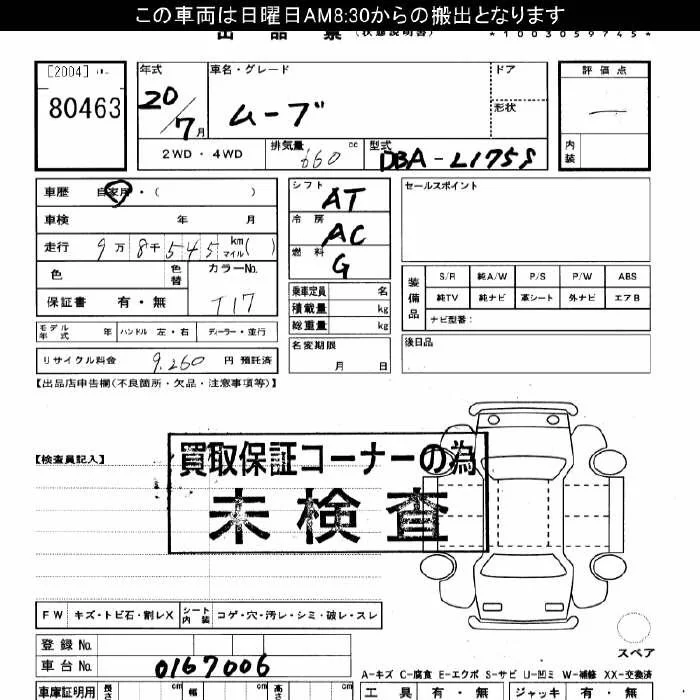 この車両は日曜日AM8:30からの搬出となります
出品票 (状態説明書) *1003059745*
[2004]
80463
年式 車名・グレード ドア 評価点
20/7月 ムーブ 形状 —
2WD・4WD 排気量 660 cc 型式 DBA-L175S 内装
車歴 自家用・( )
シフト AT
セールスポイント
車検 年 月
冷房 AC
走行 9万8千545 km マイル( )
燃料 G
色 色替 カラーNo. T17
保証書 有・無
乗車定員 名
積載量 kg
総重量 kg
装備品 S/R 純A/W P/S P/W ABS
純TV 純ナビ 革シート 外ナビ エアB
ナビ型番:
モデル年式 年 ハンドル 左・右 ディーラー・並行
名変期限 月 日
後日品
リサイクル料金 9,260 円 預託済
【出品店申告欄(不良箇所・欠品・注意事項等)】
【検査員記入】
買取保証コーナーの為
未検査
FW キズ・トビ石・割レX シート内装 コゲ・穴・汚レ・シミ・破レ・スレ
登録No.
スペア
車台No. 0167006
A-キズ C-腐食 E-エクボ S-サビ U-凹ミ W-補修 XX-交換済
車庫証明用 長さ cm 幅 cm 高さ cm 工具 有・無 ジャッキ 有・無